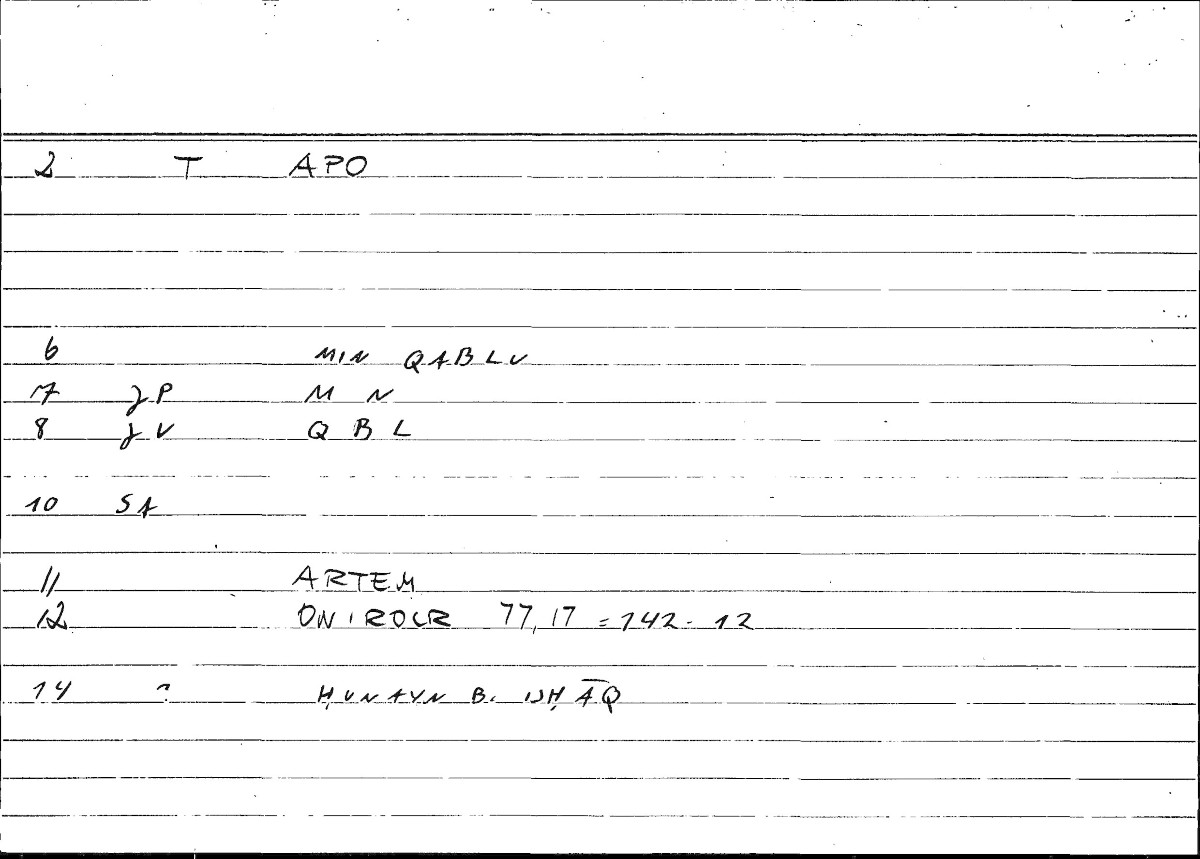 2 T APO
6 MIN QABLU
7 JP M N
8 JV Q B L
10 SA
11 ARTEM
12 ONIROCR 77,17 = 142-12
14 ? ḤUNAYN B. ISḤĀQ